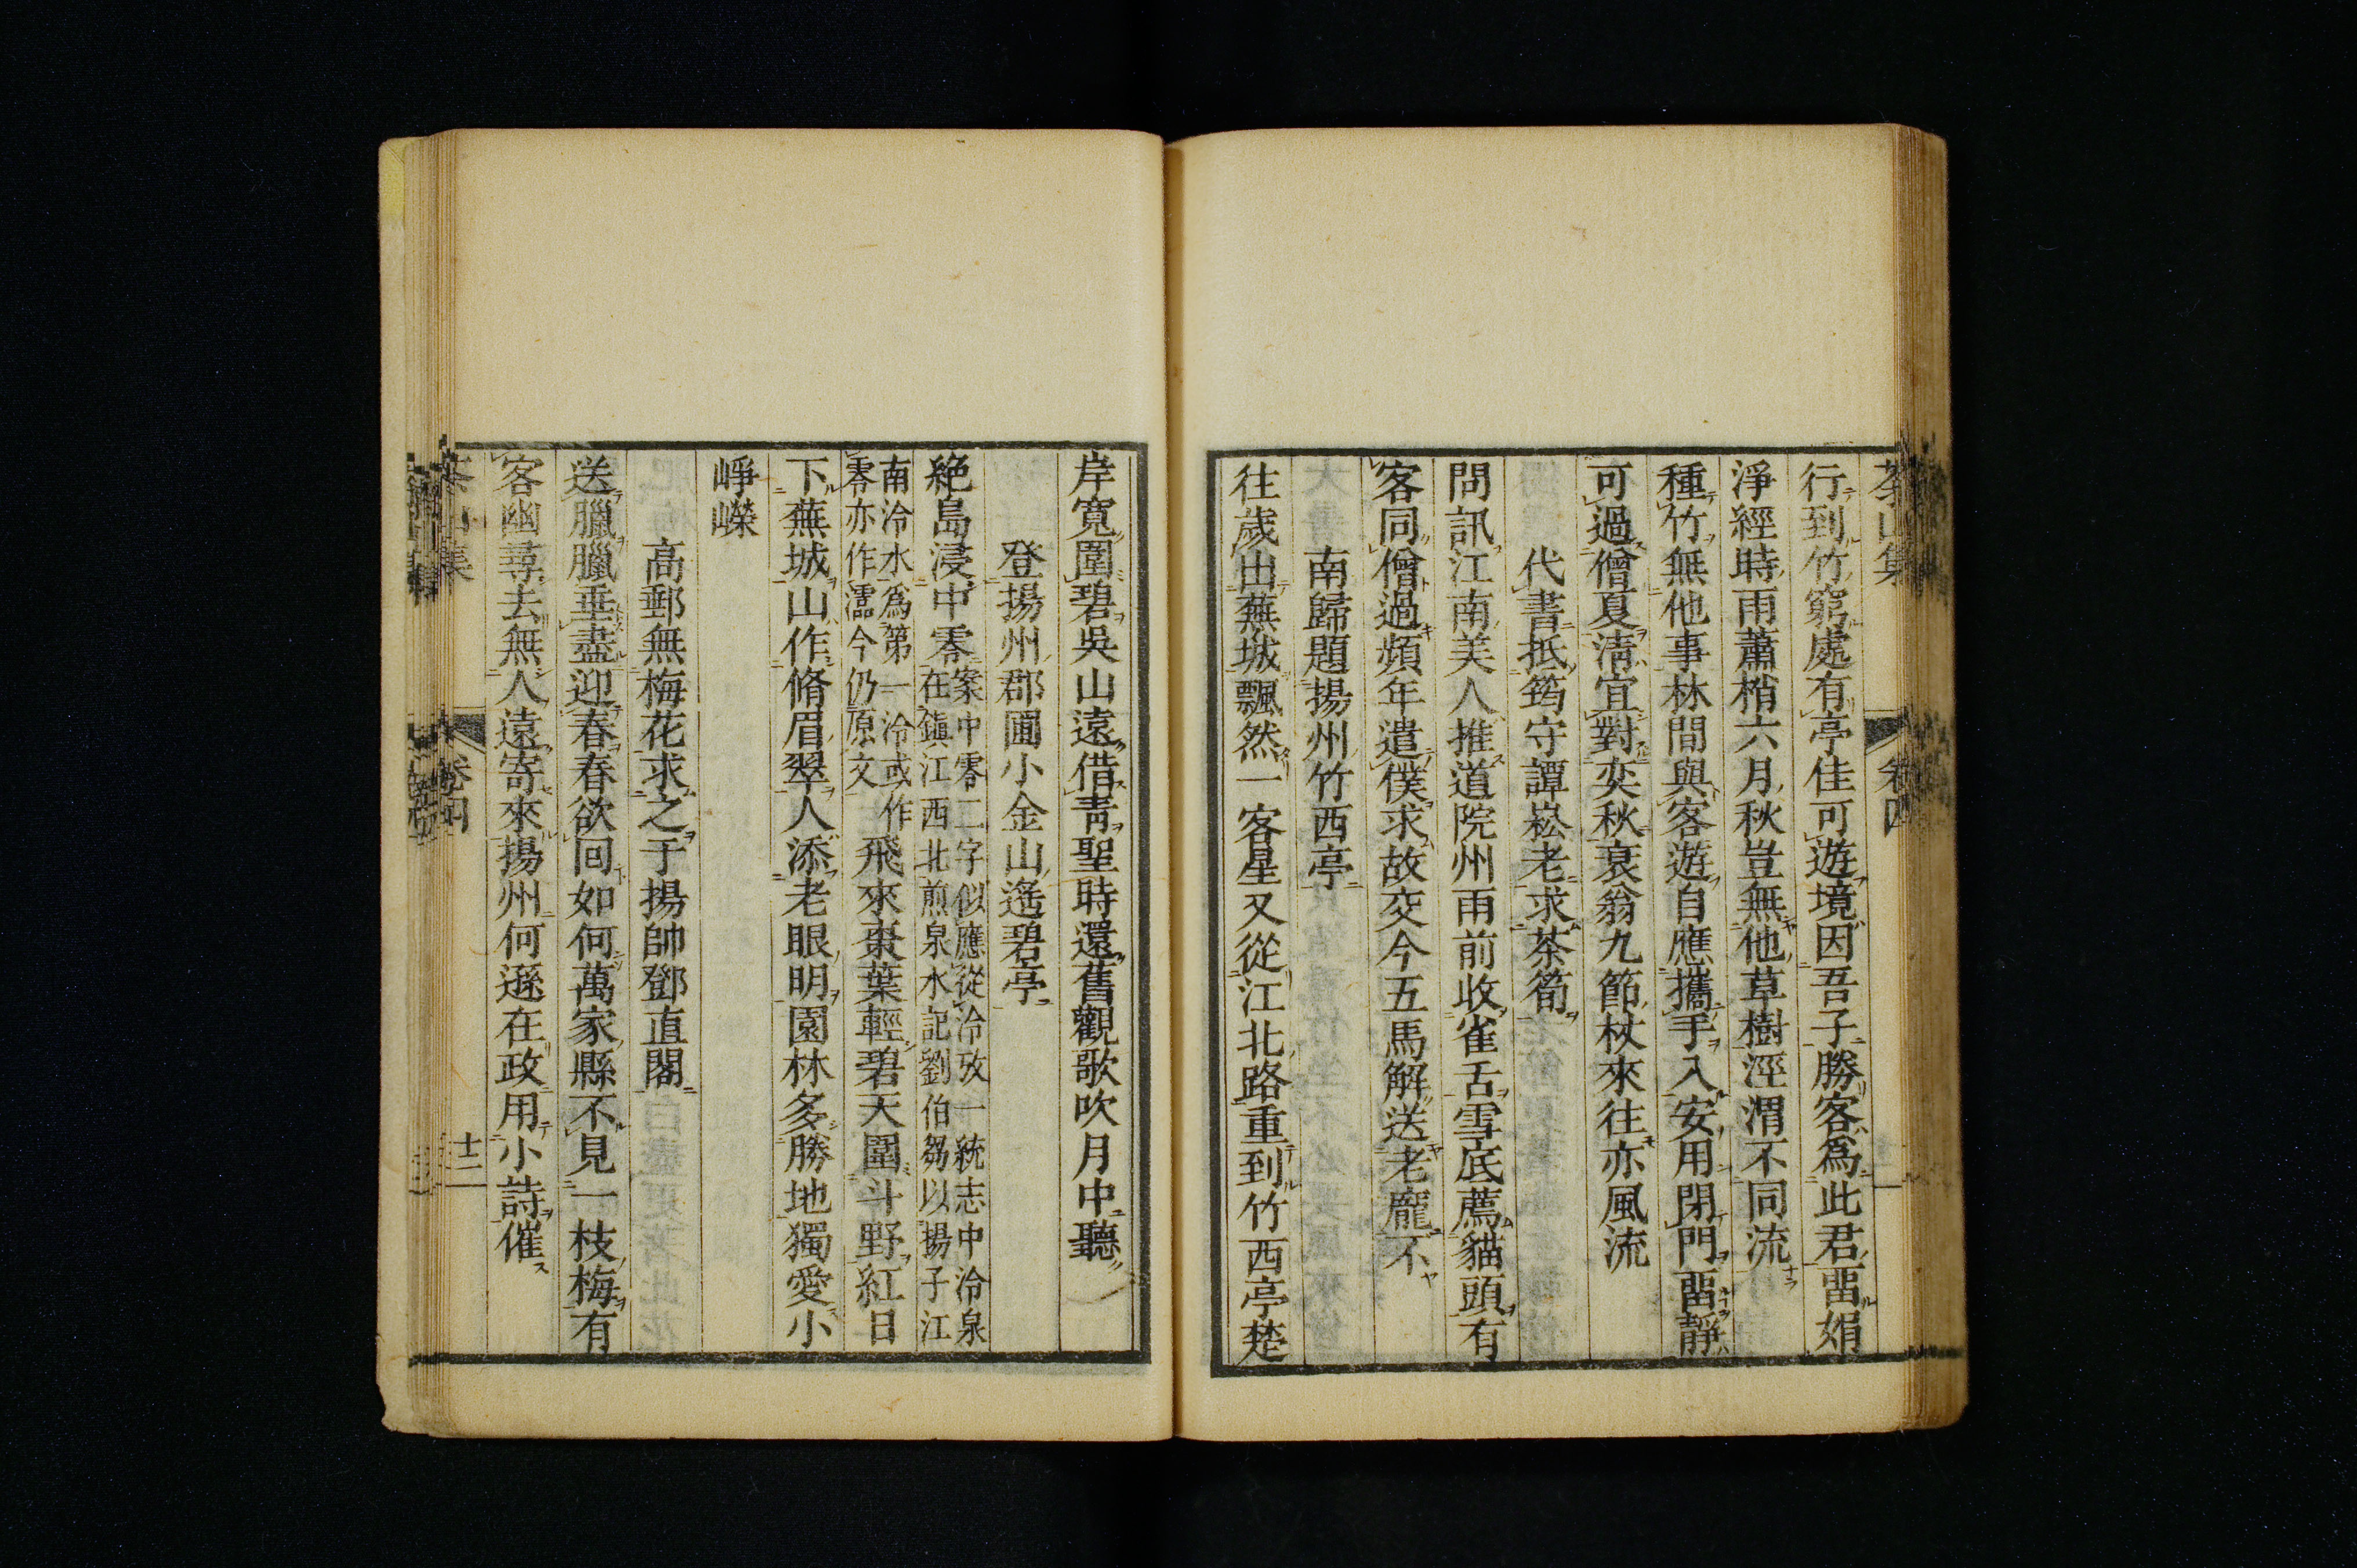 茶山集 卷四
行到竹窮處有亭佳可遊境因吾子勝客爲此君畱娟
淨經時雨蕭梢六月秋豈無他草樹涇渭不同流
種竹無他事林間與客遊自應攜手入安用閉門畱靜
可過僧夏淸宜對奕秋衰翁九節杖來往亦風流
代書抵筠守譚崧老求茶筍
問訊江南美人推道院州雨前收雀舌雪底薦貓頭有
客同僧過頻年遣僕求故交今五馬解送老龐不
南歸題揚州竹西亭
往歲出蕪城飄然一客星又從江北路重到竹西亭楚
岸寬圍碧吳山遠借靑聖時還舊觀歌吹月中聽
登揚州郡圃小金山遙碧亭
絶島浸中零案中零二字似應從泠攷一統志中泠泉
在鎭江西北煎泉水記劉伯芻以揚子江
南泠水爲第一泠或作
零亦作澪今仍原文
飛來棗葉輕碧天圍斗野紅日
下蕪城山作脩眉翠人添老眼明園林多勝地獨愛小
崢嶸
高郵無梅花求之于揚帥鄧直閣
送臘臘垂盡迎春春欲回如何萬家縣不見一枝梅有
客幽尋去無人遠寄來揚州何遜在政用小詩催
茶山集 卷四 十二